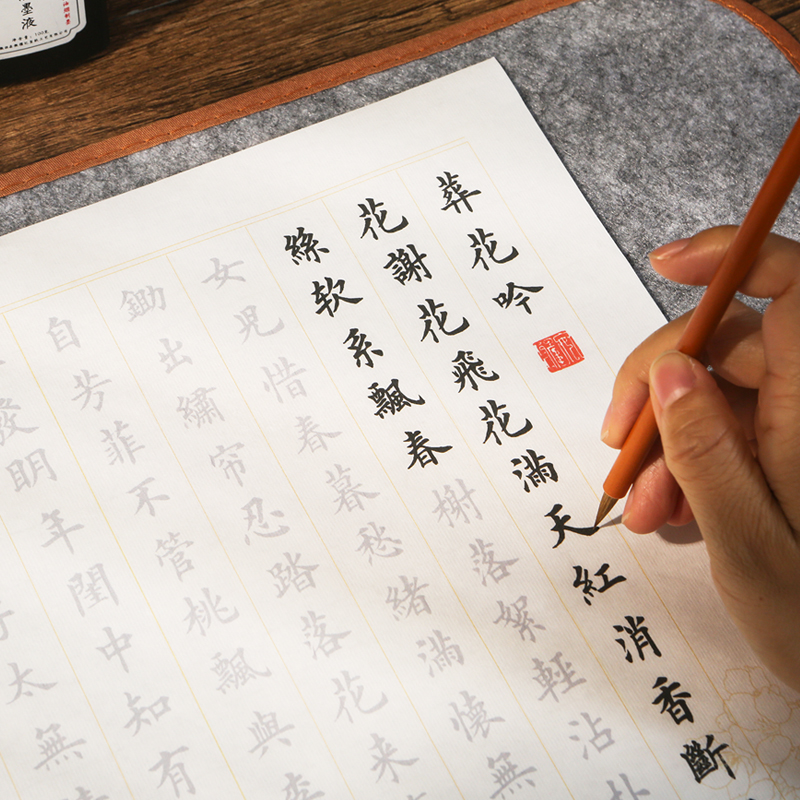 墨液
葬花吟
花謝花飛花滿天紅消香斷
絲软系飄春榭落絮輕沾
女兒惜春暮愁緒滿懷無
鋤出繡帘忍踏落花来
自芳菲不管桃飄與李
發明年閨中知有
太無